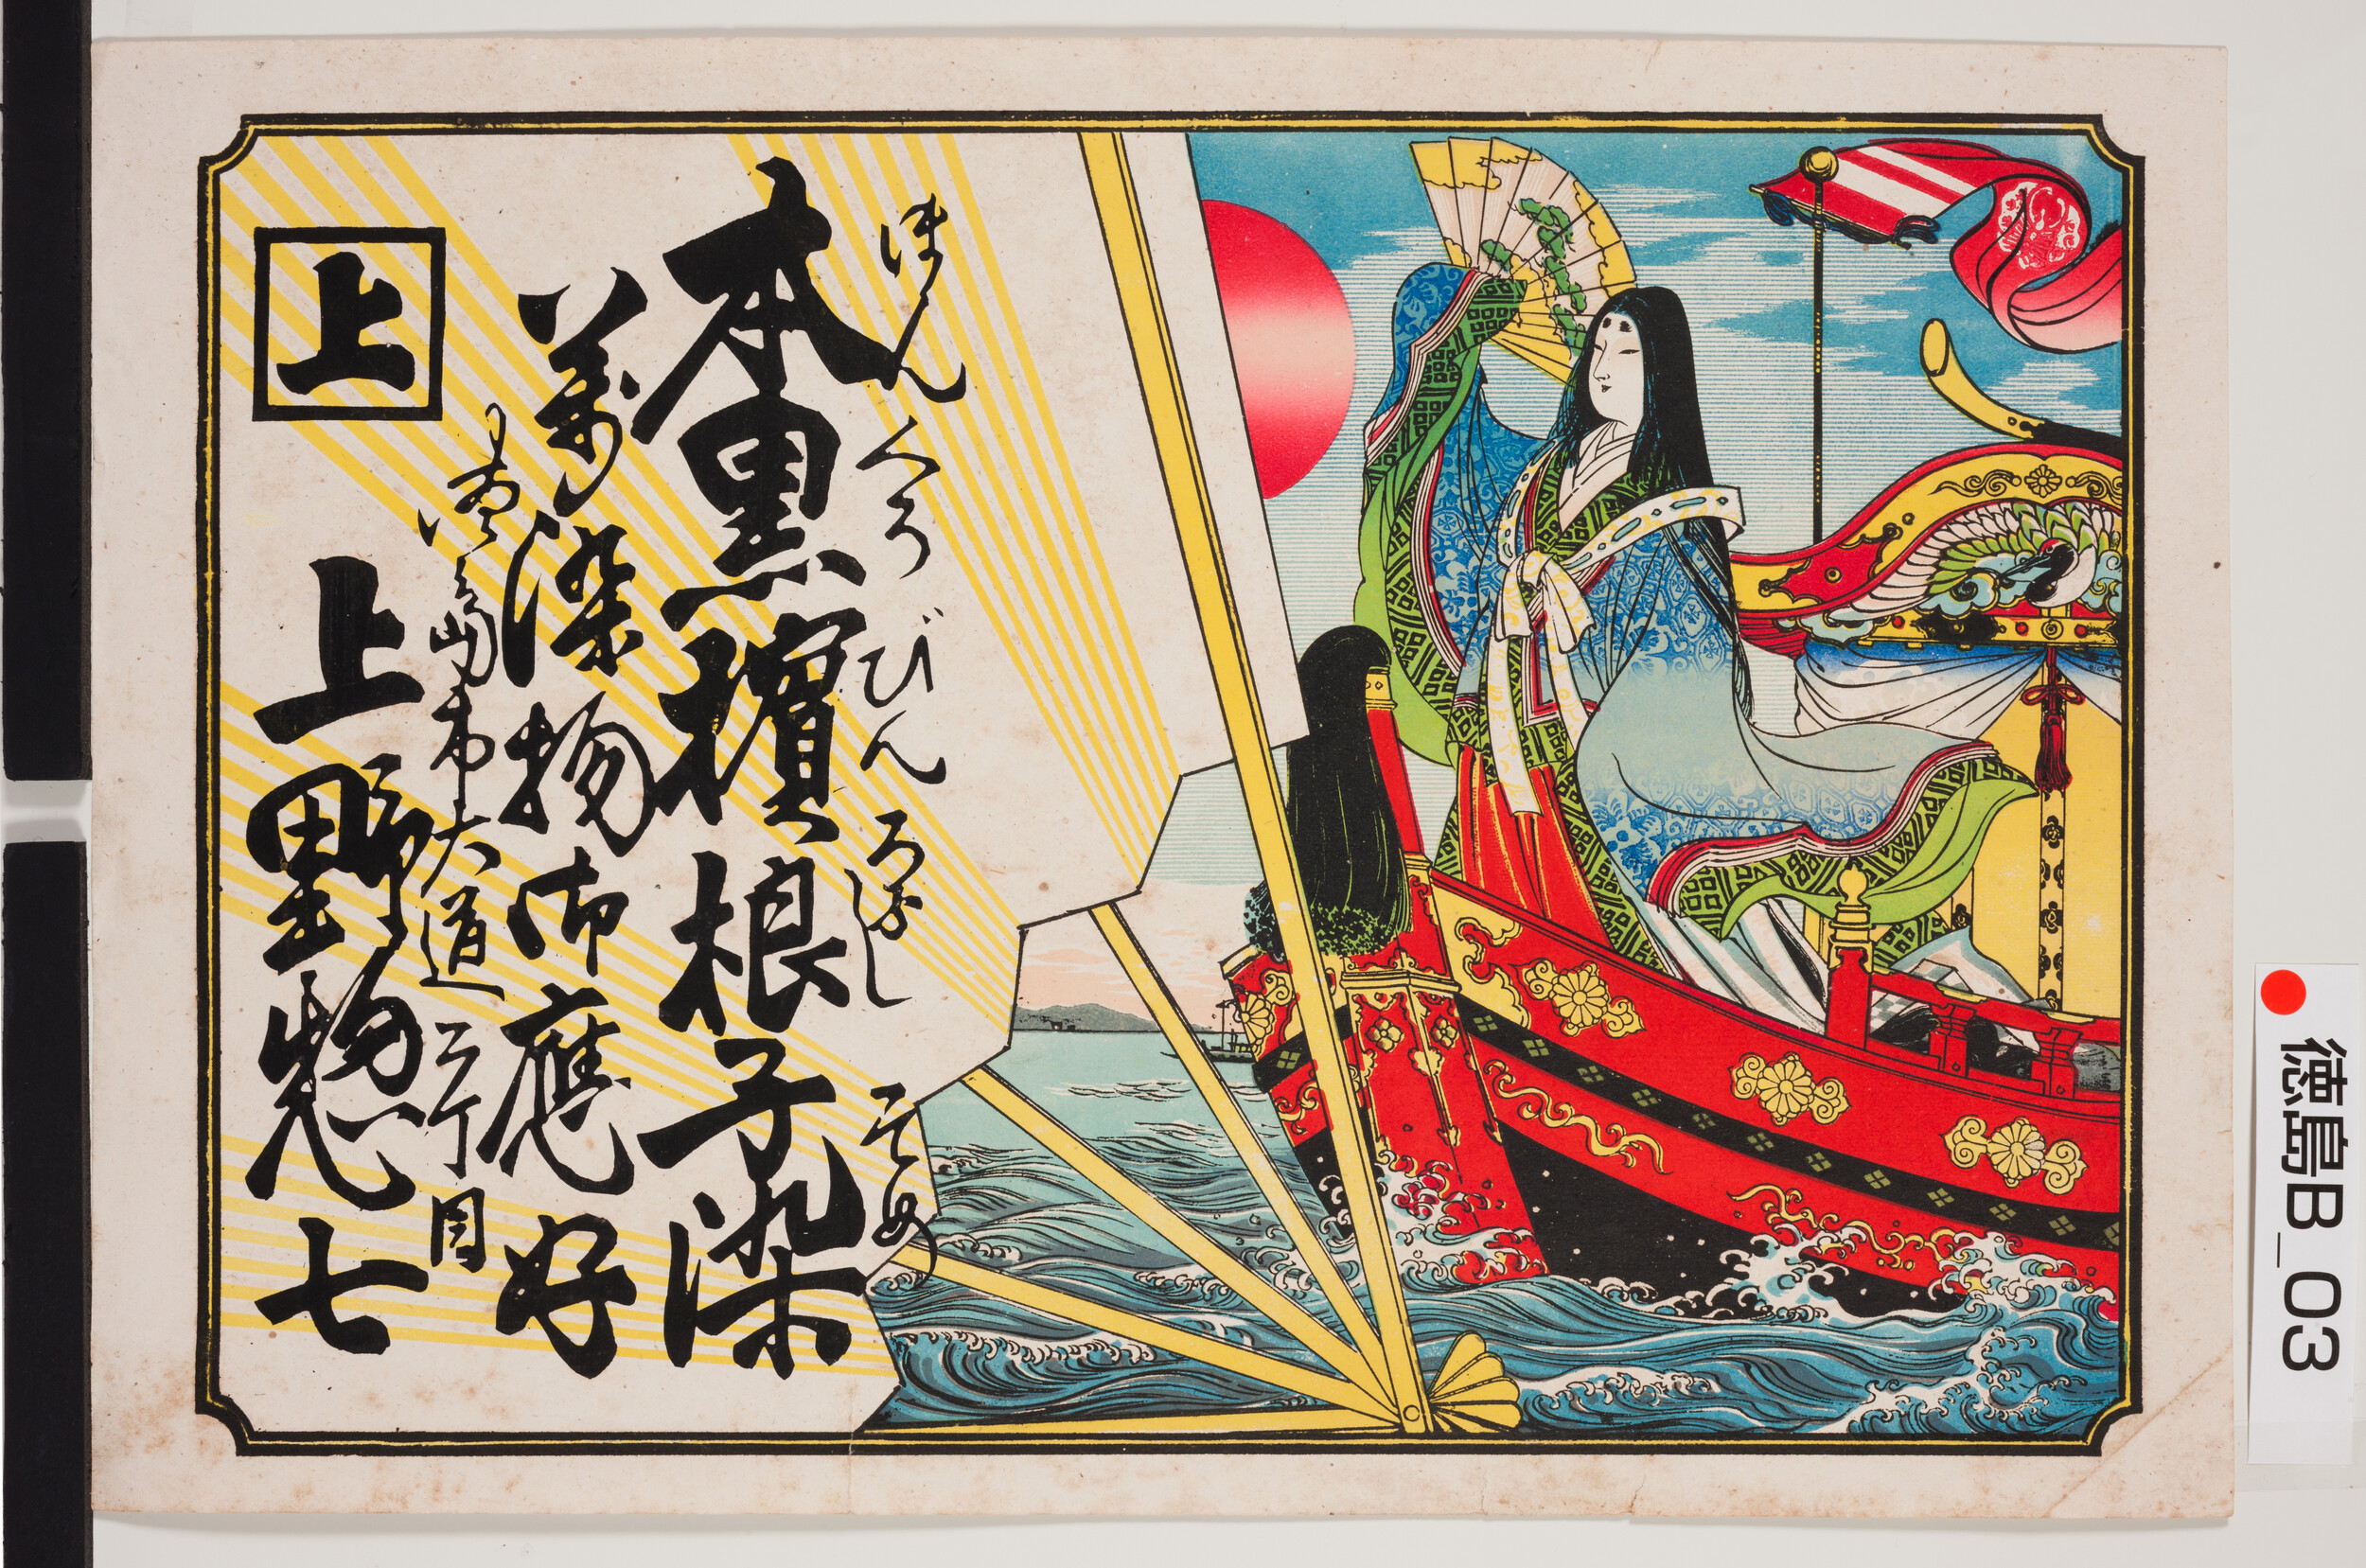 ほん くろ びん そめ
本黒檳根子染
萬染物御應好
徳嶋市大道三丁目
上
上野惣七
徳島B_03